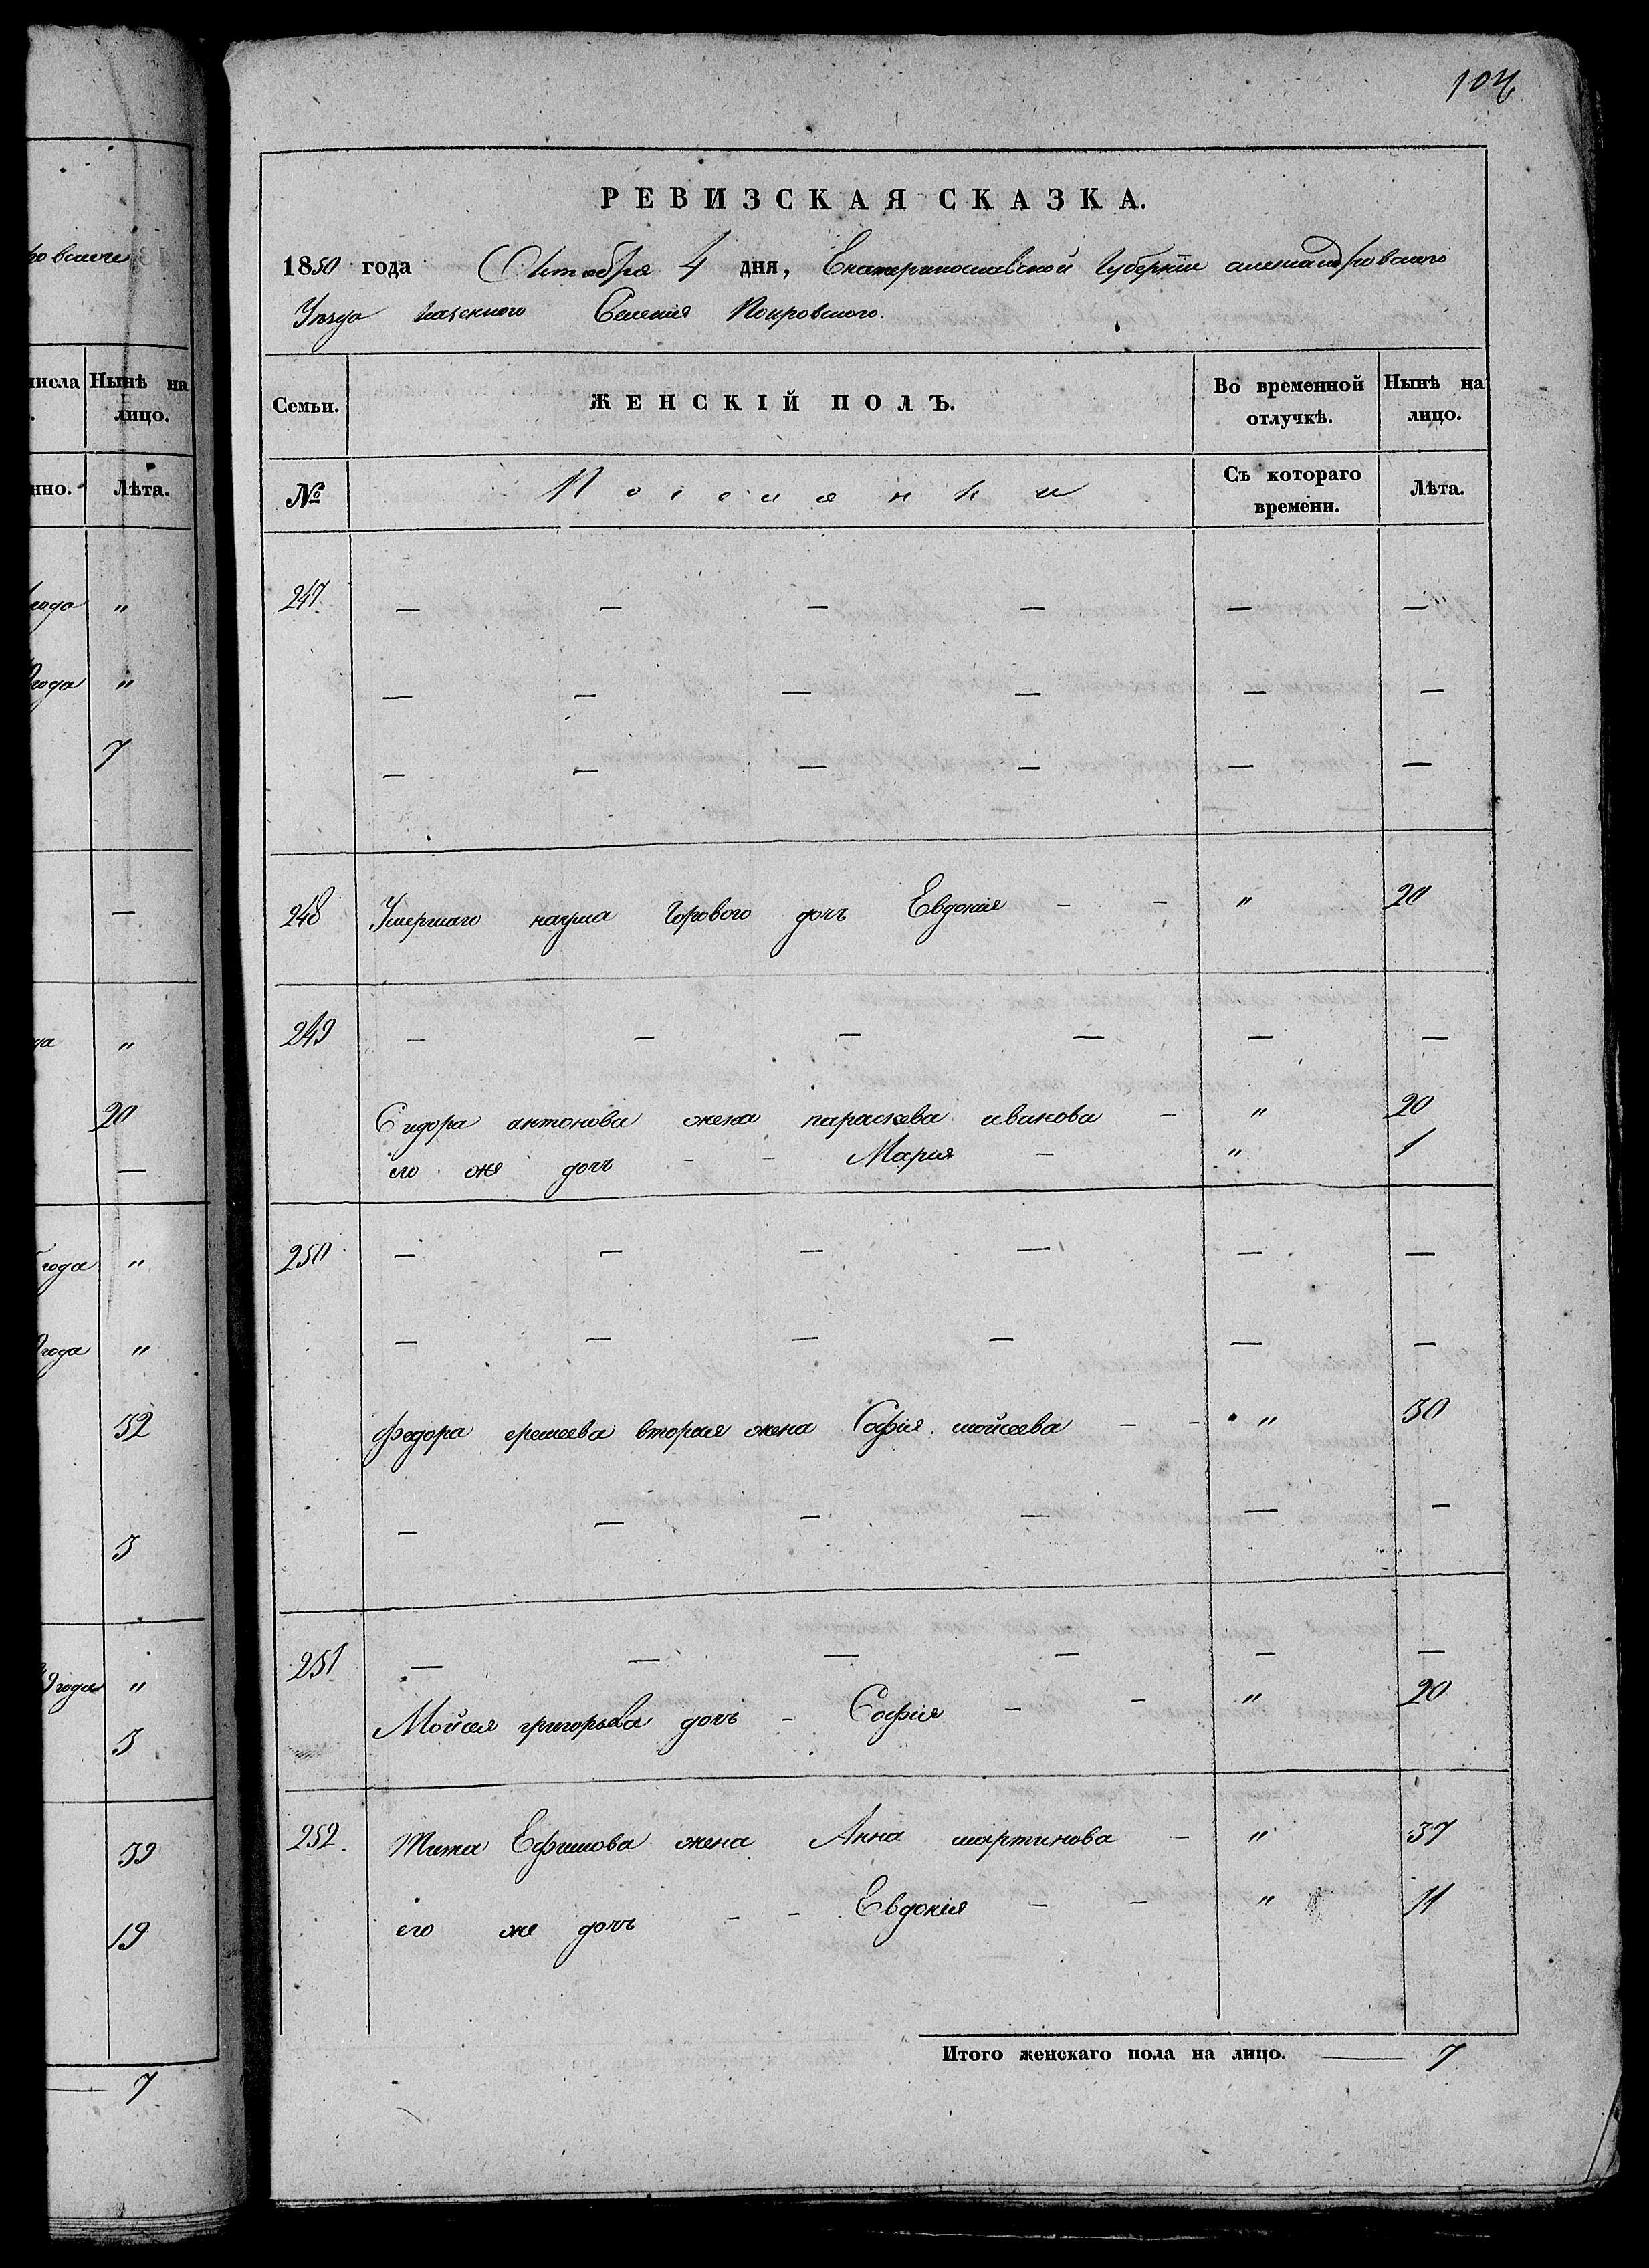 104
РЕВИЗСКАЯ СКАЗКА.
1850 года Октября 4 дня, Екатеринославской Губерніи александровского
Уезда казенного Селенія Покровского.
Семьи. ЖЕНСКІЙ ПОЛЪ. Во временной отлучкѣ. Нынѣ на лицо.
№ Поселянки Съ котораго времени. Лѣта.
247 — — — — — —
— — — — — —
— — — — — —
248 Умершаго наума Горового дочь Евдокия - - " 20
249 — — — — — —
Сидора антонова жена параскева иванова - " 20
его же дочь - - Мария - " 1
250 — — — — — —
— — — — — —
федора еремеева вторая жена Софія мойсеева - - " 30
— — — — — —
251 — — — — — —
Мойсея григорьева дочь - Софія - - " 20
252. Тита Ефимова жена Анна мартинова - " 37
его же дочь - - Евдокія - - " 11
Итого женскаго пола на лицо. — 7
ровского
числа Нынѣ на лицо.
нно. Лѣта.
года "
года "
7
—
да "
20
—
года "
года "
32
3
9 года "
3
39
19
— 7